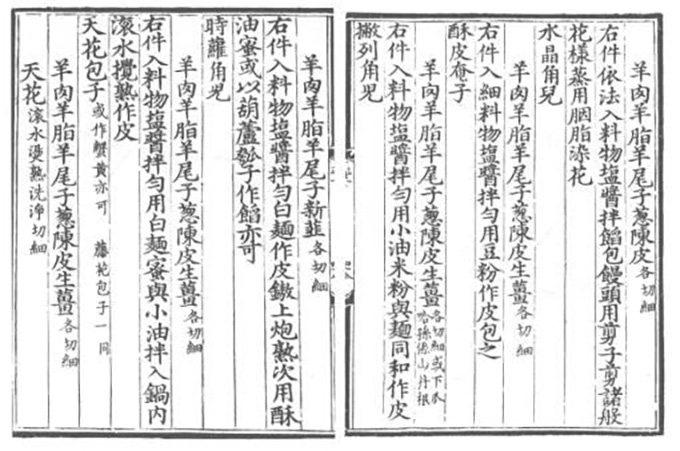 羊肉羊脂羊尾子葱陳皮各切細
右件依法入料物塩醬拌餡包饅頭用剪子剪諸般
花樣蒸用胭脂染花
水晶角兒
羊肉羊脂羊尾子葱陳皮生薑各切細
右件入細料物塩醬拌勻用豆粉作皮包之
酥皮奄子
羊肉羊脂羊尾子葱陳皮生薑各切細或下瓜哈孫係山丹根
右件入料物塩醬拌勻用小油米粉與麵同和作皮
撇列角兒
羊肉羊脂羊尾子新韭各切細
右件入料物塩醬拌勻白麵作皮鏊上炮熟次用酥
油蜜或以葫蘆瓠子作餡亦可
時蘿角兒
羊肉羊脂羊尾子葱陳皮生薑各切細
右件入料物塩醬拌勻用白麵蜜與小油拌入鍋内
滚水攪熟作皮
天花包子或作蟹黄亦可 藤花包子一同
羊肉羊脂羊尾子葱陳皮生薑各切細
天花滚水燙熟洗淨切細